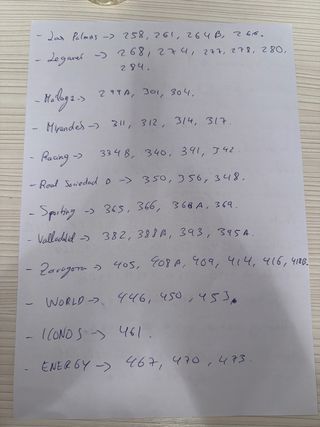 - Las Palmas -> 258, 261, 264B, 266.
- Leganés -> 268, 274, 277, 278, 280,
284.
- Málaga -> 299A, 301, 304.
- Mirandés -> 311, 312, 314, 317.
- Racing -> 334B, 340, 341, 342
- Real Sociedad B -> 350, 356, 348.
- Sporting -> 365, 366, 368A, 369.
- Valladolid -> 382, 388A, 393, 395A.
- Zaragoza -> 405, 408A, 409, 414, 416, 418B.
- WORLD -> 446, 450, 453.
- ICONOS -> 461.
- ENERGY -> 467, 470, 473.